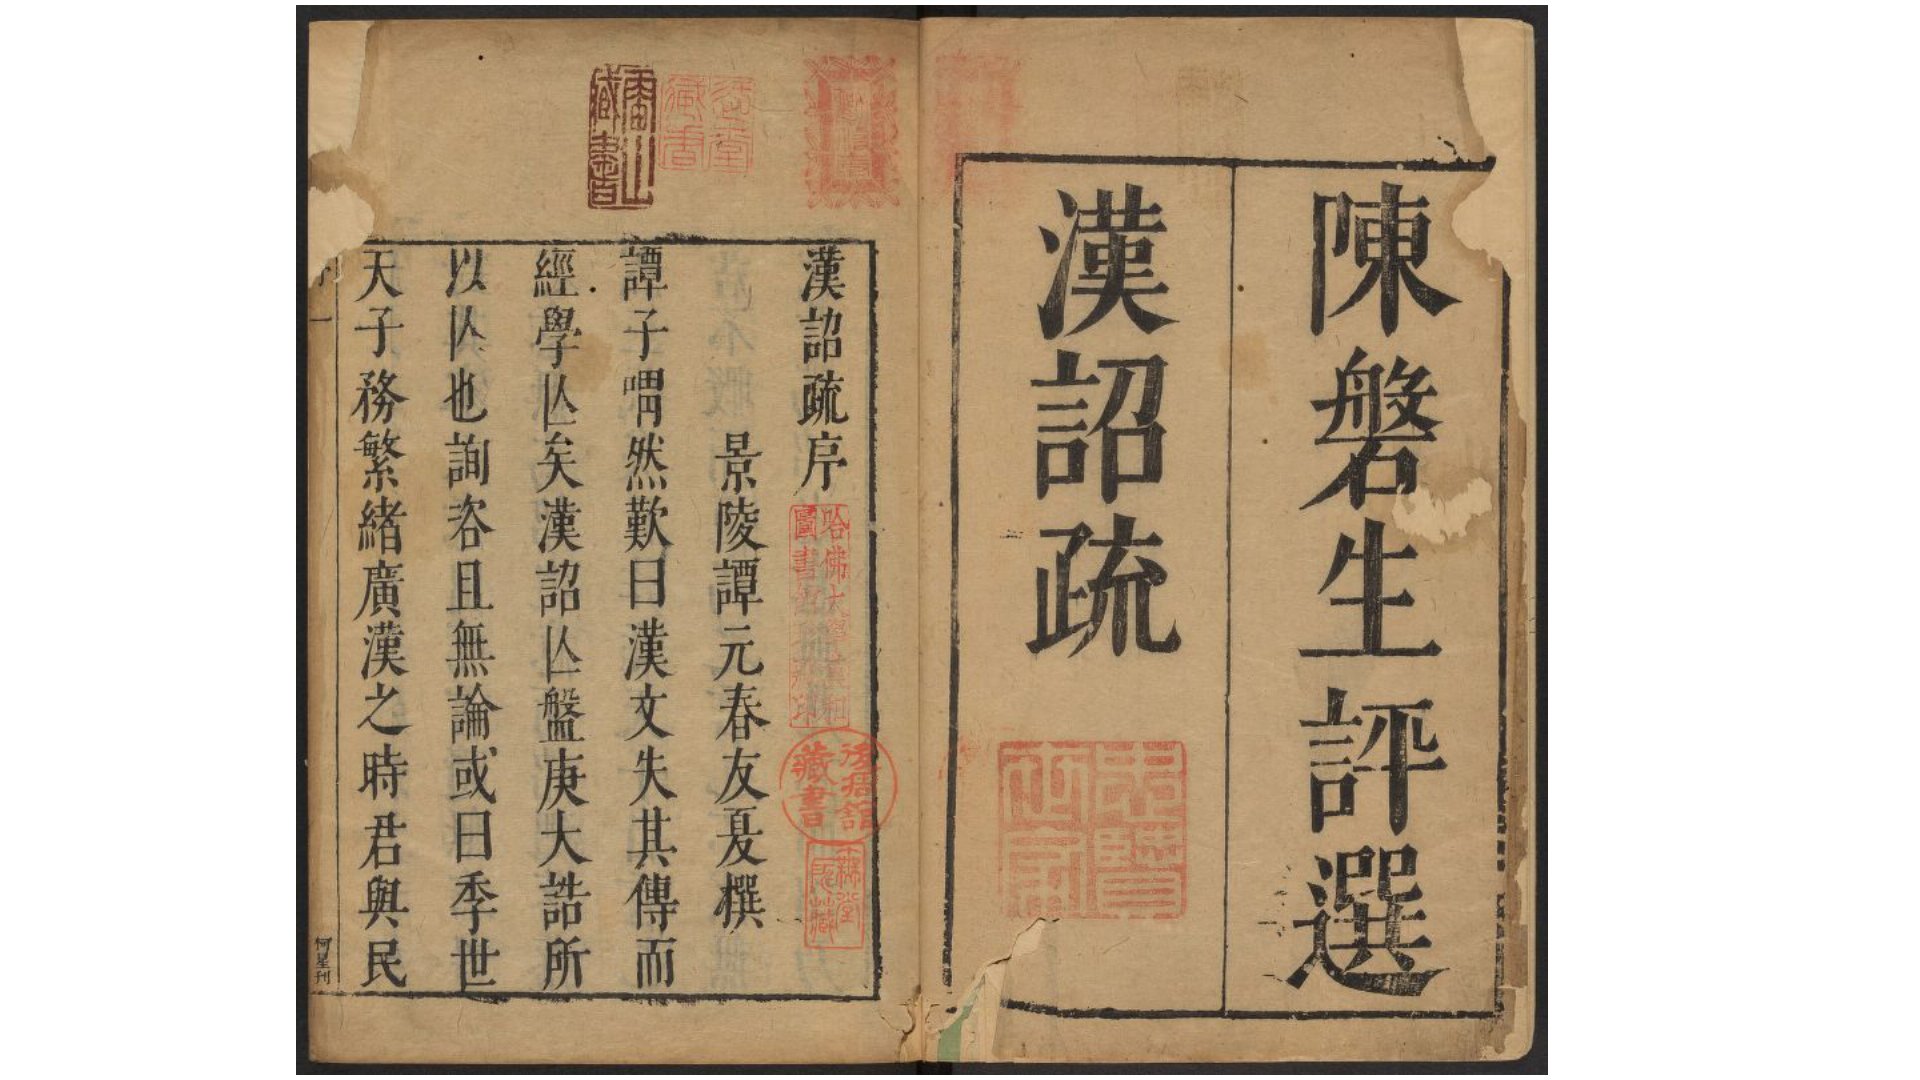 陳磐生評選
漢詔疏
漢詔疏序
景陵譚元春友夏撰
譚子喟然歎曰漢文失其傳而
經學亾矣漢詔亾盤庚大誥所
以亾也詢咨且無論或曰季世
天子務繁緒廣漢之時君與民
序一
何星刊
雷山
藏書
哈佛大學漢和
圖書館珍藏印
藏書